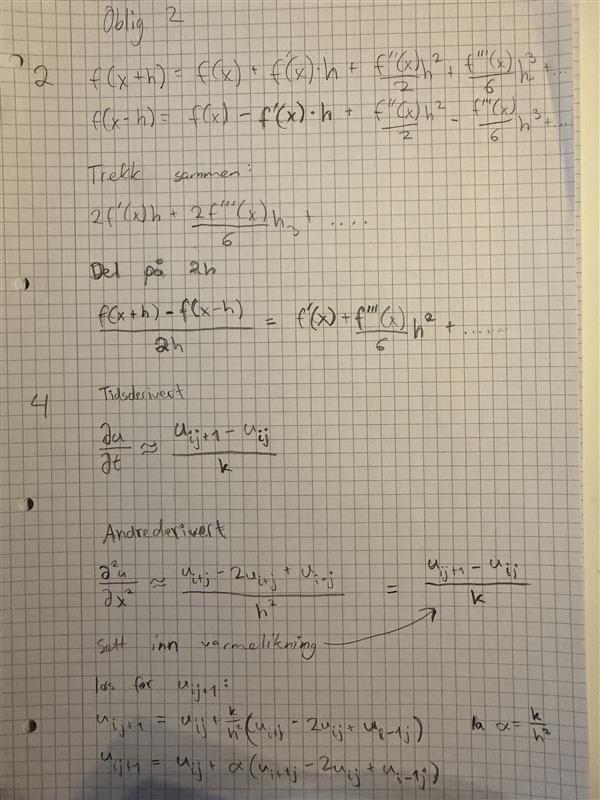 Oblig 2
2 f(x+h) = f(x) + f'(x)·h + f''(x)/2 h² + f'''(x)/6 h³ + ...
f(x-h) = f(x) - f'(x)·h + f''(x)/2 h² - f'''(x)/6 h³ + ...
Trekk sammen:
2f'(x)h + 2f'''(x)/6 h₃ + ....
Del på 2h
f(x+h) - f(x-h) / 2h = f'(x) + f'''(x)/6 h² + ......
4 Tidsderivert
∂u/∂t ≈ (u_{ij+1} - u_{ij})/k
Andrederivert
∂²u/∂x² ≈ (u_{i+j} - 2u_{i+j} + u_{i-j})/h² = (u_{ij+1} - u_{ij})/k
Sett inn varmelikning
løs for u_{ij+1}:
u_{ij+1} = u_{ij} + k/h² (u_{i+j} - 2u_{ij} + u_{i-1j}) la α = k/h²
u_{ij+1} = u_{ij} + α(u_{i+1j} - 2u_{ij} + u_{i-1j})